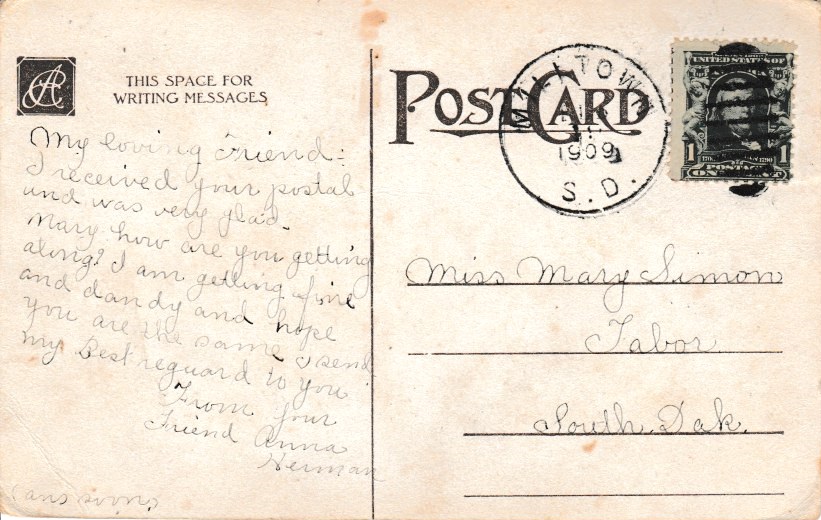 THIS SPACE FOR
WRITING MESSAGES
My loving Friend:
I received your postal
and was very glad.
Mary how are you getting
along? I am getting fine
and dandy and hope
you are the same I send
my best reguard to you
From your
Friend Anna
Herman
(ans soon)
POST CARD
MILLTOWN
1909
S. D.
UNITED STATES OF
1 1
POSTAGE
ONE
Miss Mary Simon
Tabor
South Dak.